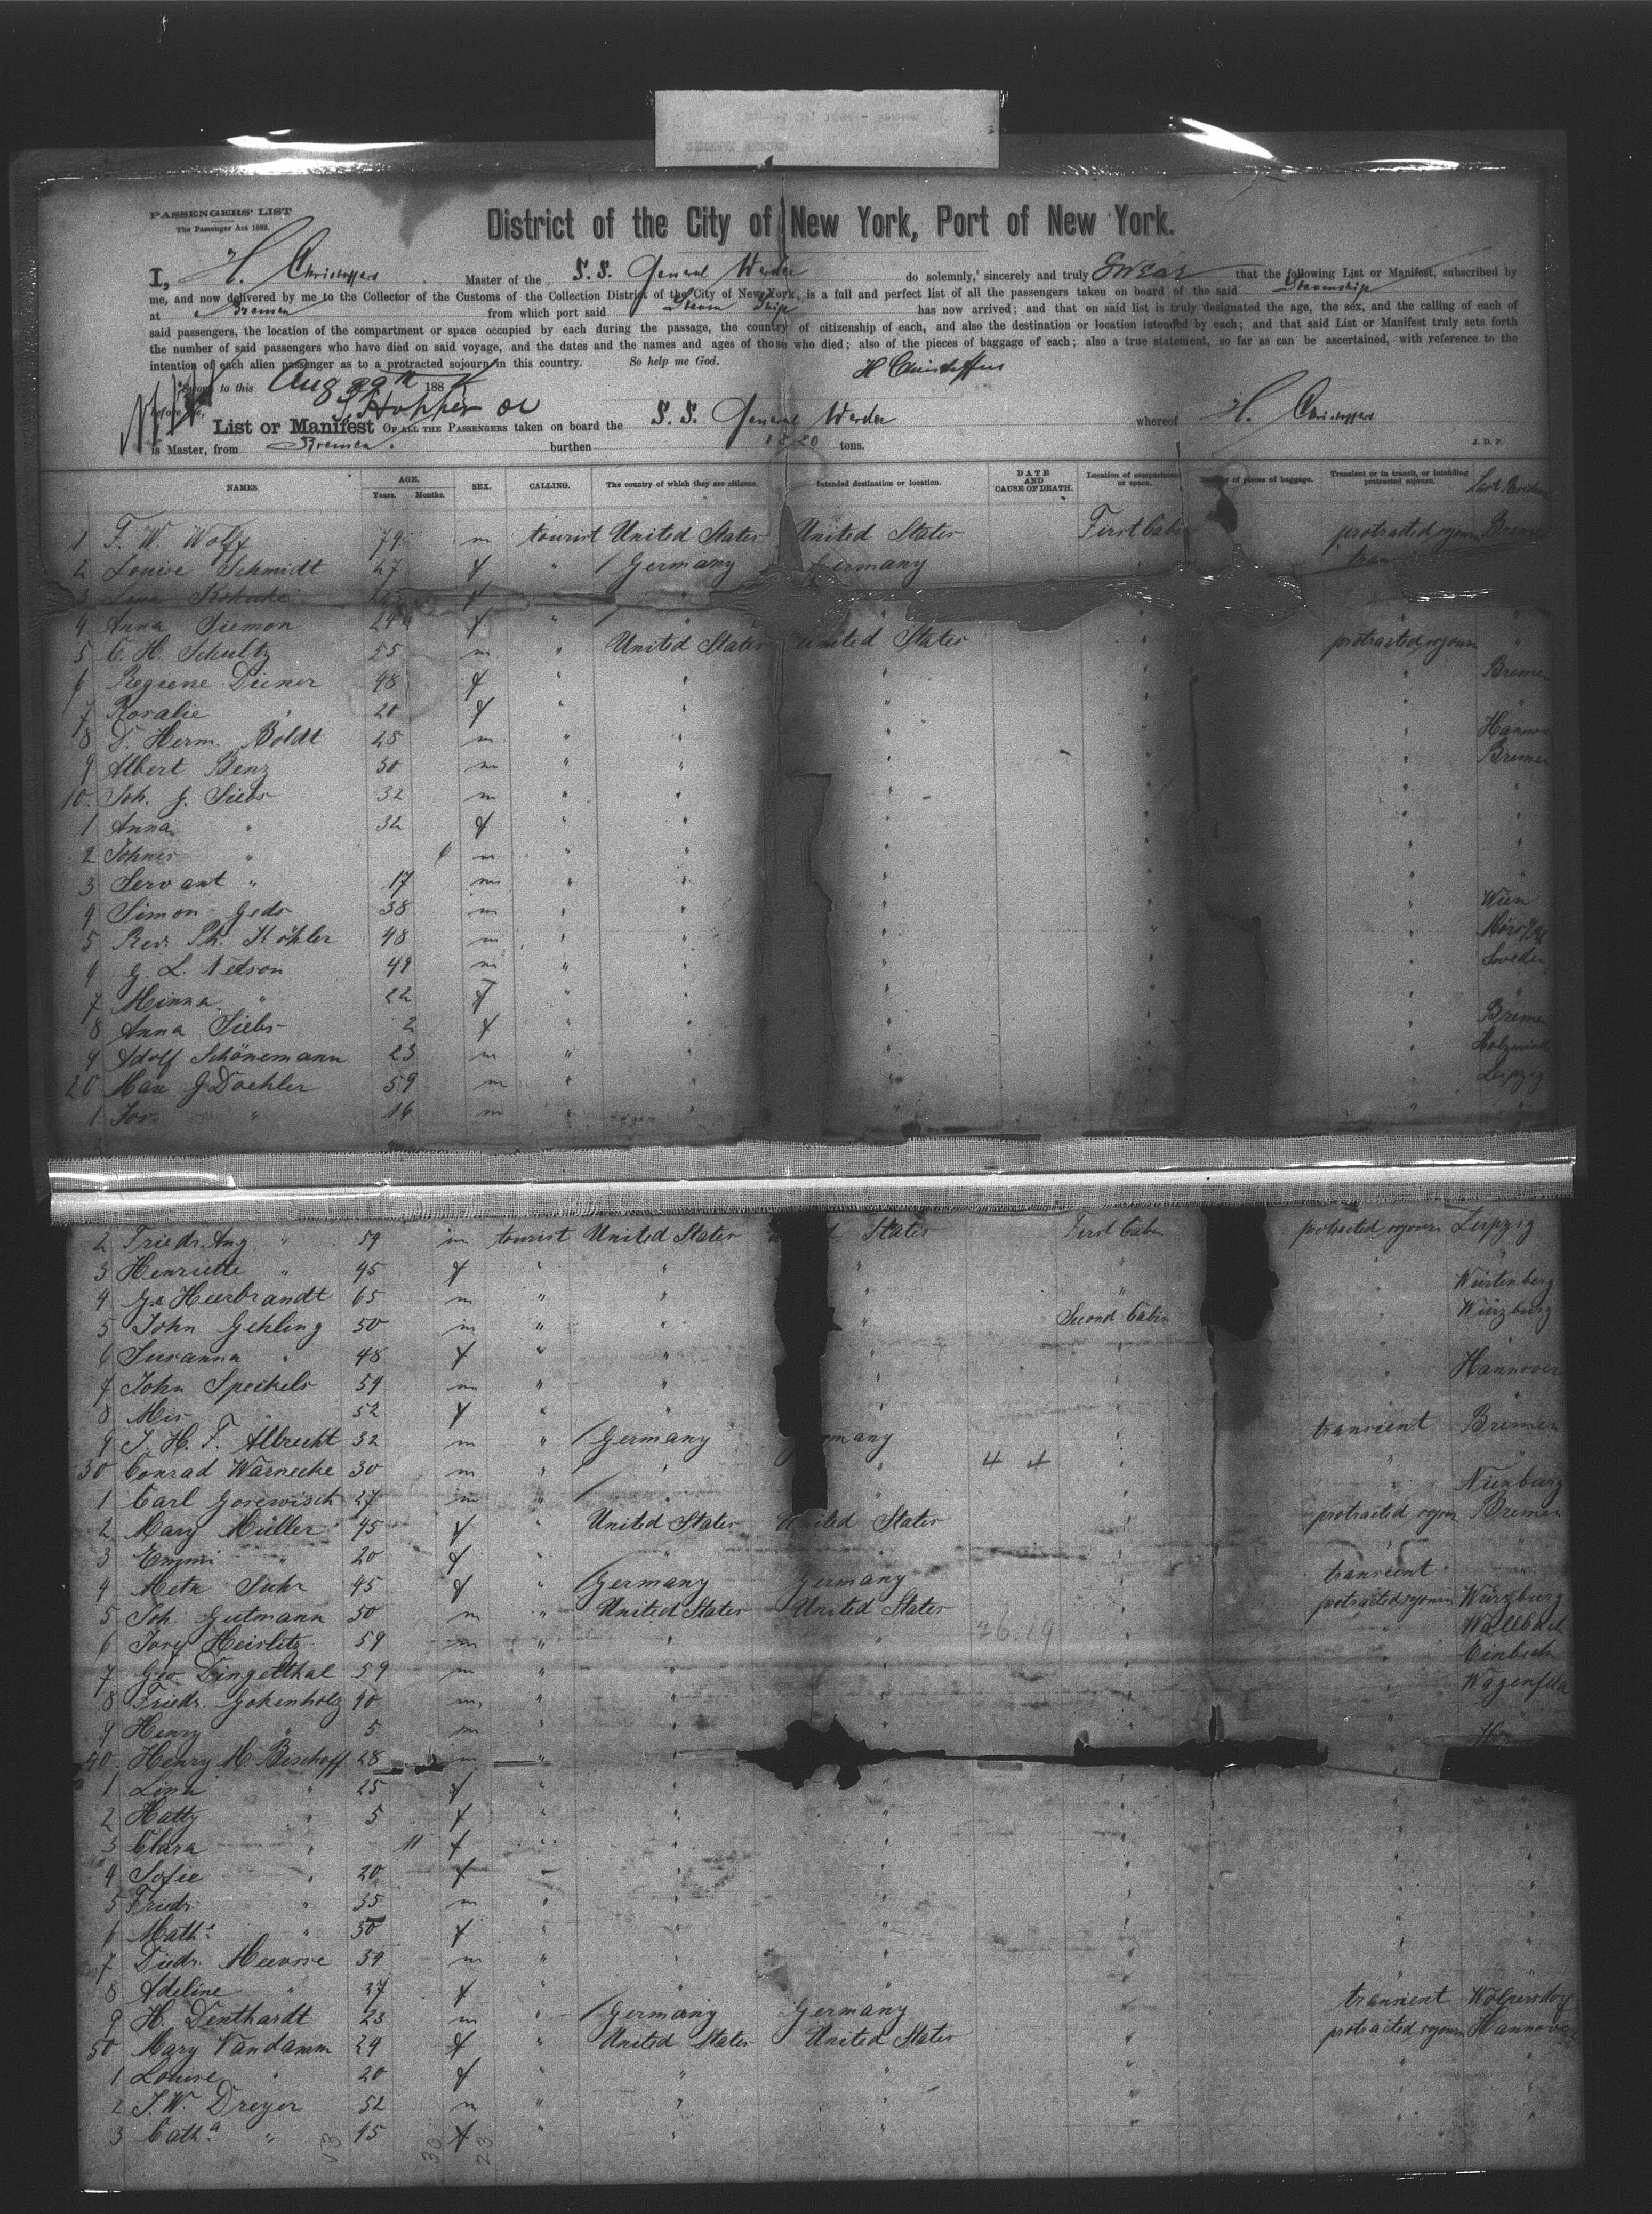 PASSENGERS' LIST
The Passenger Act 1882.
District of the City of New York, Port of New York.
I, H. Christoffers Master of the S. S. General Werder do solemnly, sincerely and truly Swear that the following List or Manifest, subscribed by
me, and now delivered by me to the Collector of the Customs of the Collection District of the City of New York, is a full and perfect list of all the passengers taken on board of the said Steamship
at Bremen from which port said Steam Ship has now arrived; and that on said list is truly designated the age, the sex, and the calling of each of
said passengers, the location of the compartment or space occupied by each during the passage, the country of citizenship of each, and also the destination or location intended by each; and that said List or Manifest truly sets forth
the number of said passengers who have died on said voyage, and the dates and the names and ages of those who died; also of the pieces of baggage of each; also a true statement, so far as can be ascertained, with reference to the
intention of each alien passenger as to a protracted sojourn in this country. So help me God. H Christoffers
Sworn to this Aug 29th 188
before me,
List or Manifest OF ALL THE PASSENGERS taken on board the S. S. General Werder whereof H. Christoffers
is Master, from Bremen. burthen 1820 tons. J. D. P.
NAMES. AGE. Years. Months. SEX. CALLING. The country of which they are citizens. Intended destination or location. DATE AND CAUSE OF DEATH. Location of compartment or space. Number of pieces of baggage. Transient or in transit, or intending protracted sojourn. Last Residen
1 F. W. Wolff 74 m tourist United States United States First Cabin protracted sojourn Bremen
2 Louise Schmidt 27 f " Germany Germany
3 Lina
4 Anna Siemon 24 f "
5 C. H. Schultz 55 m " United States United States protracted sojourn "
6 Regiene Diener 48 f " " " " " Bremen
7 Rosalie " 20 f " " " " " "
8 D. Herm. Boldt 28 m " " " " " Hannover
9 Albert Benz 30 m " " " " " Bremen
10. Joh. G. Siebs 32 m " " " " " "
1 Anna " 32 f " " " " " "
2 " 6 m " " " " " "
3 Servant " 17 m " " " " " "
4 Simon Geds 38 m " " " " " Wien
5 Rev. Ph. Köhler 48 m " " " " "
6 G. L. Nelson 49 m " " " " " Sweden
7 Minna " 22 f " " " " " "
8 Anna Siebs 2 f " " " " " Bremen
9 Adolf Schönemann 23 m " " " " " Holzminden
20 Max G Doehler 59 m " " " " " Leipzig
1 " 16 m " " " " " "
2 Friedr. Aug " 59 m tourist United States States First Cabin protracted sojourn Leipzig
3 Henriette " 45 f " " " " " "
4 Heerbrandt 65 m " " " " " Würtenberg
5 John Gehling 50 m " " " Second Cabin " Würzburg
6 Susanna " 48 f " " " " "
7 John Speckels 54 m " " " " " Hannover
8 Mrs " 52 f " " " " " "
9 J. H. F. Albrecht 32 m " Germany many " transient Bremen
30 Conrad Warnecke 30 m " " " 4 4 " " "
1 Carl Gosewisch 27 m " " " " " Nienburg
2 Mary Müller 45 f " United States United States " protracted sojourn Bremen
3 Emmi " 20 f " " " " " "
4 Meta Suhr 45 f " Germany Germany " transient "
5 Joh. Gutmann 50 m " United States United States " protracted sojourn Würzburg
6 Heislitz 59 m " " " 76.19 " " Wallbach
7 Geo. Dingelthal 59 m " " " " " Einbeck
8 Friedr. Gokenholz 40 m " " " " " Wagenfeld
9 Henry " 5 m " " " " " "
40. Henry H Bischoff 28 m " "
1 Lina " 25 f " " " " "
2 Hatty " 5 f " " " " " "
3 Clara " 11 f " " " " " "
4 Sofie " 20 f " " " " " "
5 Friedr. " 35 m " " " " " "
6 Math.a " 30 f " " " " " "
7 Diedr. Meevsse 34 m " " " " " "
8 Adeline " 27 f " " " " " "
9 H. Denthardt 23 m " Germany Germany " transient Wolpersdorf
50 Mary Vandamm 29 f " United States United States " protracted sojourn Hannover
1 Louise " 20 f " " " " " "
2 J. W. Dreyer 52 m " " " " " "
3 Cath.a " 45 f " " " " " "
30 23